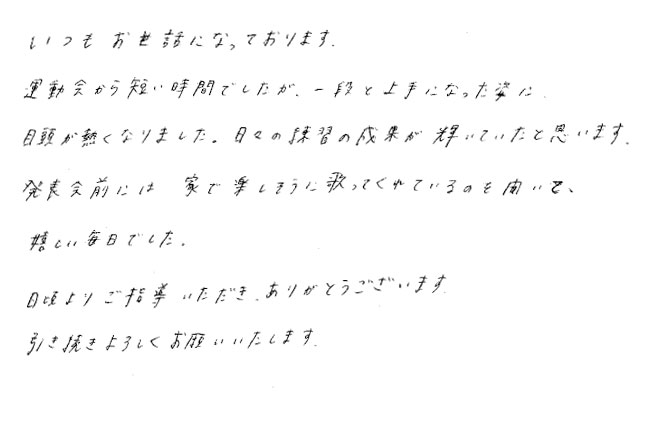 いつもお世話になっております.
運動会から短い時間でしたが、一段と上手になった姿に
目頭が熱くなりました。日々の練習の成果が輝いていたと思います.
発表会前には 家で楽しそうに歌ってくれているのを聞いて、
嬉しい毎日でした。
日頃よりご指導いただき、ありがとうございます.
引き続きよろしくお願いいたします.